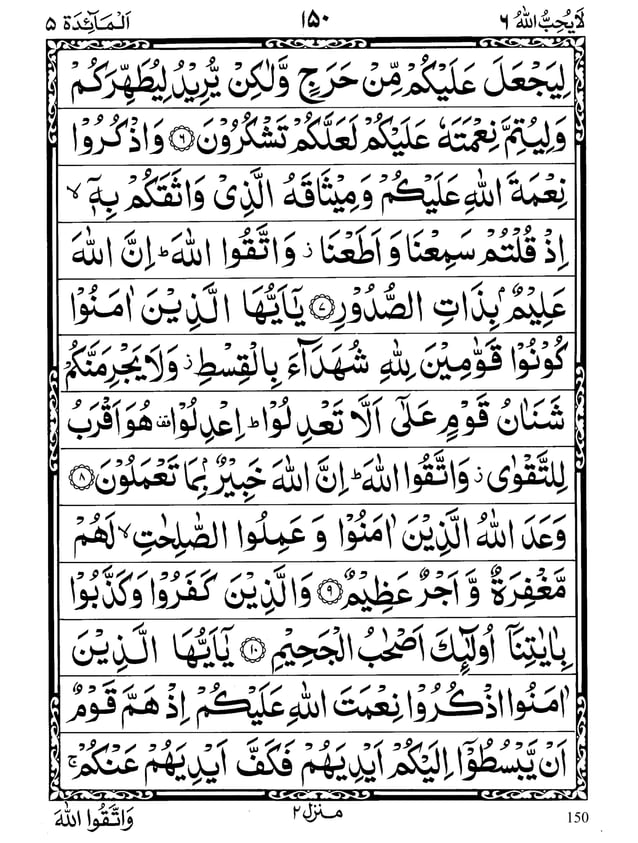 لَا يُحِبُّ اللّٰهُ ٦ ١٥٠ اَلْمَآئِدَة ٥
لِيَجْعَلَ عَلَيْكُمْ مِّنْ حَرَجٍ وَّلٰكِنْ يُّرِيْدُ لِيُطَهِّرَكُمْ
وَلِيُتِمَّ نِعْمَتَهٗ عَلَيْكُمْ لَعَلَّكُمْ تَشْكُرُوْنَ ۝٦ وَاذْكُرُوْا
نِعْمَةَ اللّٰهِ عَلَيْكُمْ وَمِيْثَاقَهُ الَّذِيْ وَاثَقَكُمْ بِهٖٓ ۙ
اِذْ قُلْتُمْ سَمِعْنَا وَ اَطَعْنَا ز وَاتَّقُوا اللّٰهَ ؕ اِنَّ اللّٰهَ
عَلِيْمٌۢ بِذَاتِ الصُّدُوْرِ ۝٧ يٰٓاَيُّهَا الَّذِيْنَ اٰمَنُوْا
كُوْنُوْا قَوّٰمِيْنَ لِلّٰهِ شُهَدَآءَ بِالْقِسْطِ ز وَلَا يَجْرِمَنَّكُمْ
شَنَاٰنُ قَوْمٍ عَلٰٓى اَلَّا تَعْدِلُوْا ؕ اِعْدِلُوْا قف هُوَ اَقْرَبُ
لِلتَّقْوٰى ز وَاتَّقُوا اللّٰهَ ؕ اِنَّ اللّٰهَ خَبِيْرٌۢ بِمَا تَعْمَلُوْنَ ۝٨
وَعَدَ اللّٰهُ الَّذِيْنَ اٰمَنُوْا وَ عَمِلُوا الصّٰلِحٰتِ ۙ لَهُمْ
مَّغْفِرَةٌ وَّ اَجْرٌ عَظِيْمٌ ۝٩ وَالَّذِيْنَ كَفَرُوْا وَكَذَّبُوْا
بِاٰيٰتِنَآ اُولٰٓئِكَ اَصْحٰبُ الْجَحِيْمِ ۝١٠ يٰٓاَيُّهَا الَّذِيْنَ
اٰمَنُوا اذْكُرُوْا نِعْمَتَ اللّٰهِ عَلَيْكُمْ اِذْ هَمَّ قَوْمٌ
اَنْ يَّبْسُطُوْٓا اِلَيْكُمْ اَيْدِيَهُمْ فَكَفَّ اَيْدِيَهُمْ عَنْكُمْ ۚ
150 منزل ٢ وَاتَّقُوا اللّٰهَ